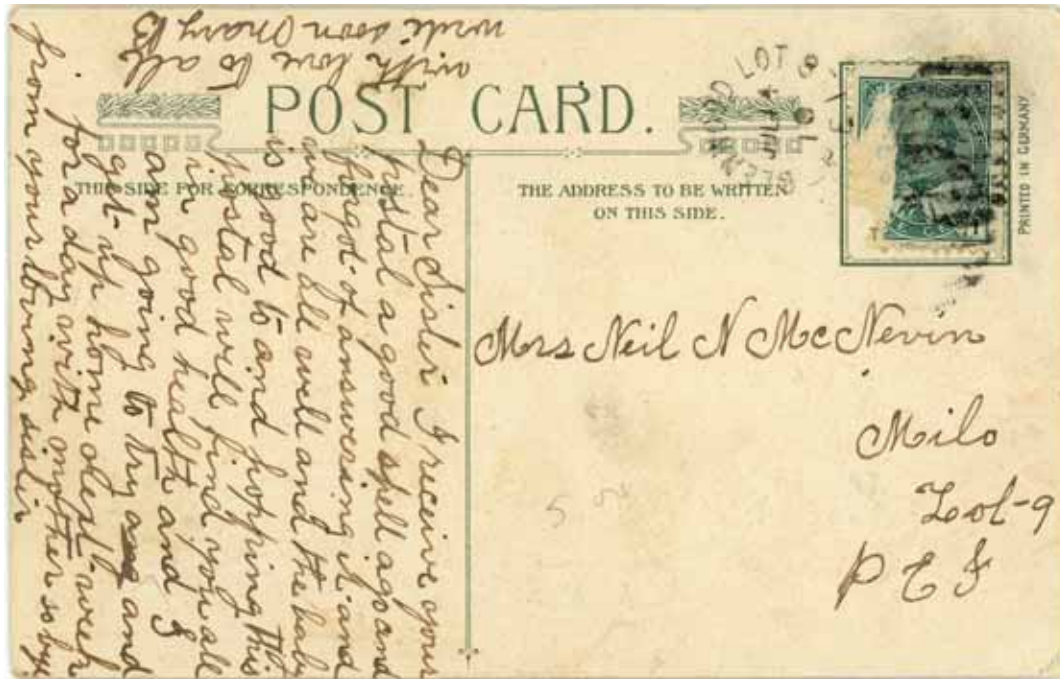 POST CARD.
THIS SIDE FOR CORRESPONDENCE.
THE ADDRESS TO BE WRITTEN
ON THIS SIDE.
PRINTED IN GERMANY
LOT 8
Dear Sister I receive your
postal a good spell ago and
forgot of answering it and
we are all well and the baby
is good to and hopping this
postal will find you all
in good health and I
am going to try and
get up home week
for a day with mother so bye
from your loving sister
with love to all
write soon Mary B
Mrs Neil N McNevin
Milo
Lot-9
P E I